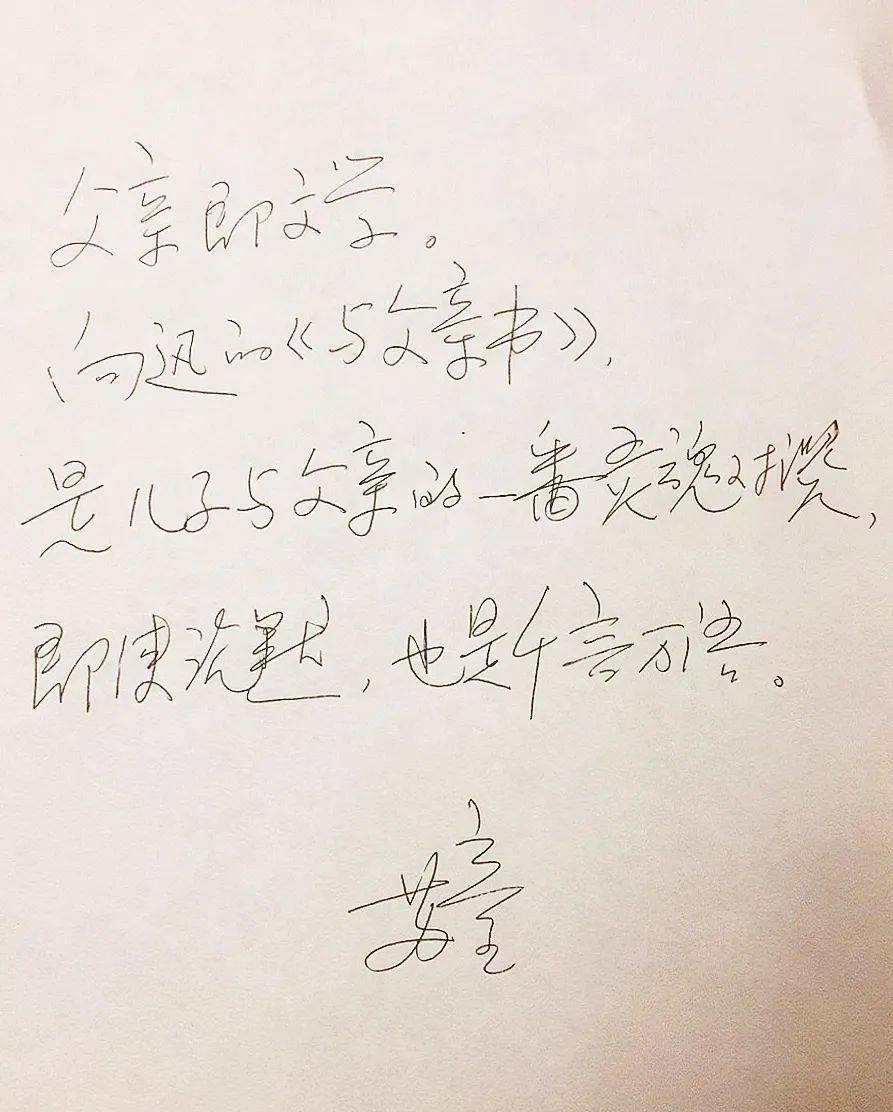 父亲即文学。
向迅的《与父亲书》,
是儿子与父亲的一番灵魂对撰,
即使沉默,也是千言万语。
苏童